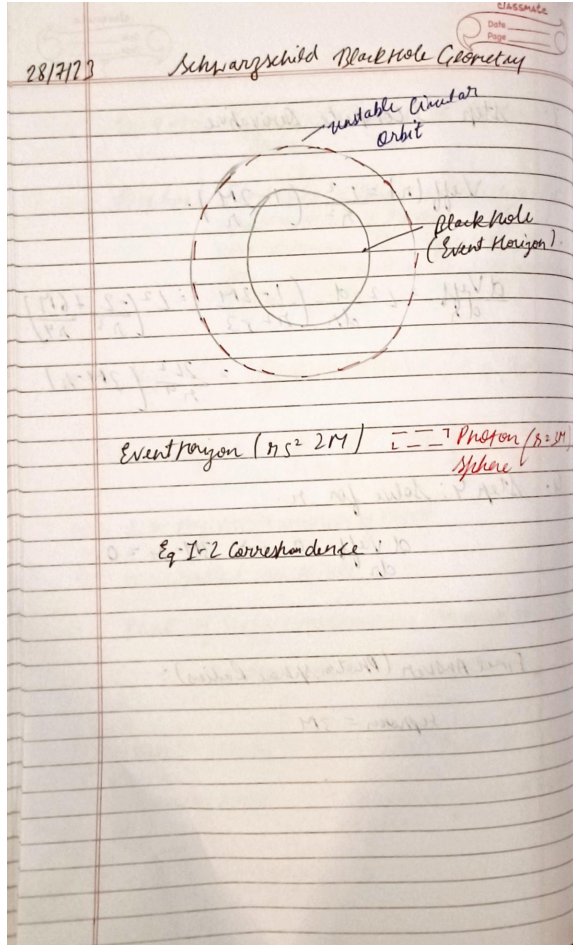 CLASSMATE
Date
Page
28/7/23 Schwarzschild Black Hole Geometry
unstable Circular
Orbit
Black Hole
(Event Horizon)
Event Horizon (rs = 2M) Photon (r = 3M
Sphere
Eq-1-2 Correspondence :